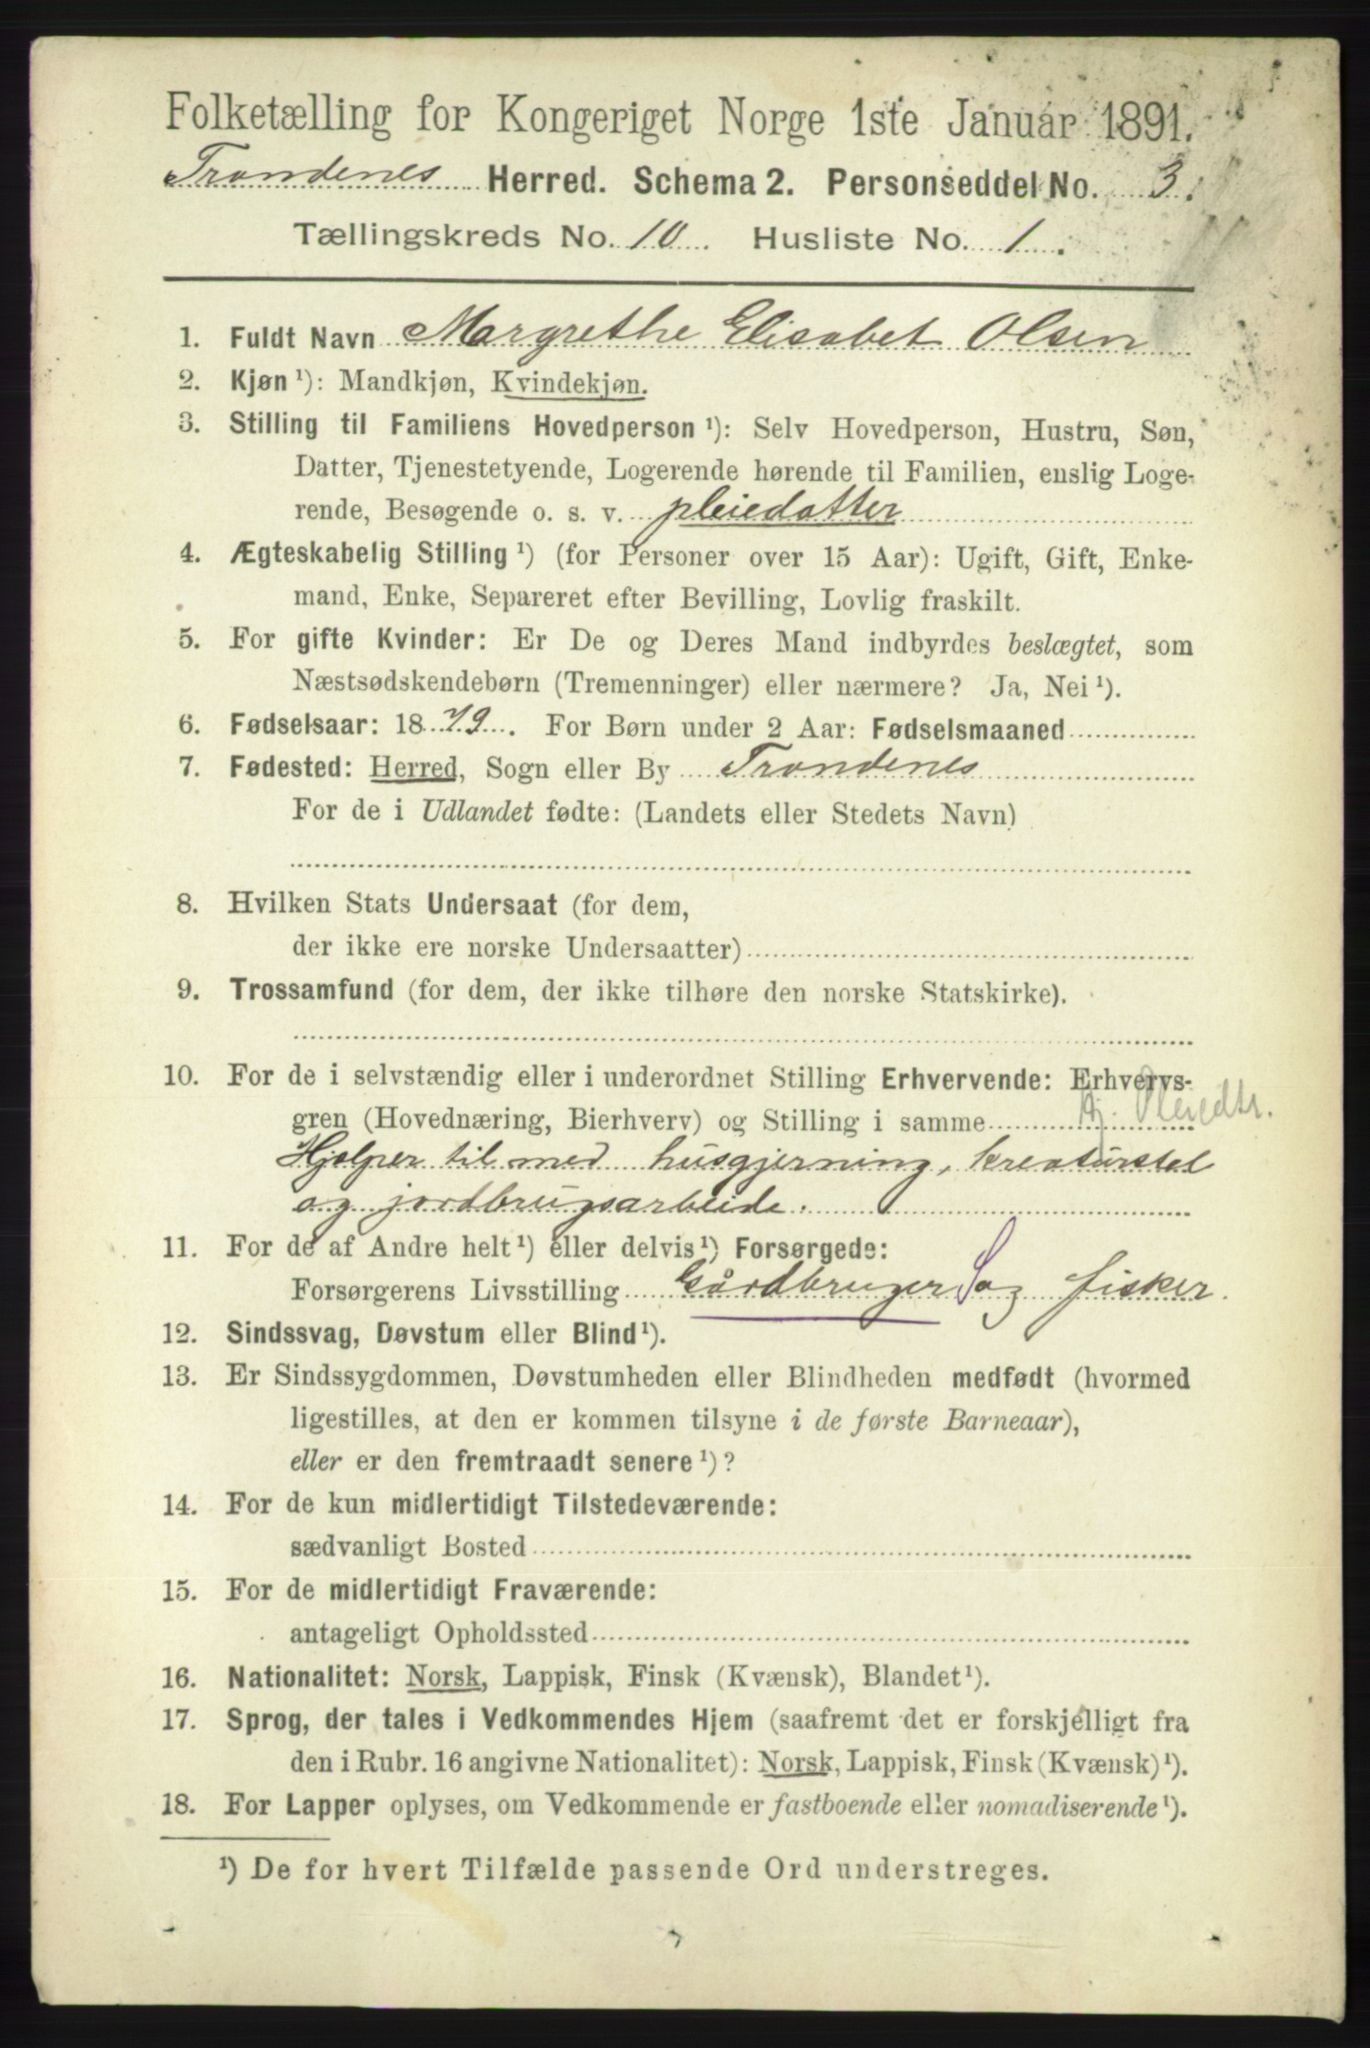 Folketælling for Kongeriget Norge 1ste Januar 1891.
Trondenes Herred. Schema 2. Personseddel No. 3.
Tællingskreds No. 10. Husliste No. 1.
1. Fuldt Navn Margrethe Elisabet Olsen
2. Kjøn ¹): Mandkjøn, Kvindekjøn.
3. Stilling til Familiens Hovedperson ¹): Selv Hovedperson, Hustru, Søn,
Datter, Tjenestetyende, Logerende hørende til Familien, enslig Loge-
rende, Besøgende o. s. v. pleiedatter
4. Ægteskabelig Stilling ¹) (for Personer over 15 Aar): Ugift, Gift, Enke-
mand, Enke, Separeret efter Bevilling, Lovlig fraskilt.
5. For gifte Kvinder: Er De og Deres Mand indbyrdes beslægtet, som
Næstsødskendebørn (Tremenninger) eller nærmere? Ja, Nei ¹).
6. Fødselsaar: 1879. For Børn under 2 Aar: Fødselsmaaned
7. Fødested: Herred, Sogn eller By Trondenes
For de i Udlandet fødte: (Landets eller Stedets Navn)
8. Hvilken Stats Undersaat (for dem,
der ikke ere norske Undersaatter)
9. Trossamfund (for dem, der ikke tilhøre den norske Statskirke).
10. For de i selvstændig eller i underordnet Stilling Erhvervende: Erhvervs-
gren (Hovednæring, Bierhverv) og Stilling i samme Hj. Pleiedtr.
Hjelper til med husgjerning, kreaturstel
og jordbrugsarbeide.
11. For de af Andre helt ¹) eller delvis ¹) Forsørgede:
Forsørgerens Livsstilling Gårdbruger S og fisker.
12. Sindssvag, Døvstum eller Blind ¹).
13. Er Sindssygdommen, Døvstumheden eller Blindheden medfødt (hvormed
ligestilles, at den er kommen tilsyne i de første Barneaar),
eller er den fremtraadt senere ¹)?
14. For de kun midlertidigt Tilstedeværende:
sædvanligt Bosted
15. For de midlertidigt Fraværende:
antageligt Opholdssted
16. Nationalitet: Norsk, Lappisk, Finsk (Kvænsk), Blandet ¹).
17. Sprog, der tales i Vedkommendes Hjem (saafremt det er forskjelligt fra
den i Rubr. 16 angivne Nationalitet): Norsk, Lappisk, Finsk (Kvænsk) ¹).
18. For Lapper oplyses, om Vedkommende er fastboende eller nomadiserende ¹).
¹) De for hvert Tilfælde passende Ord understreges.